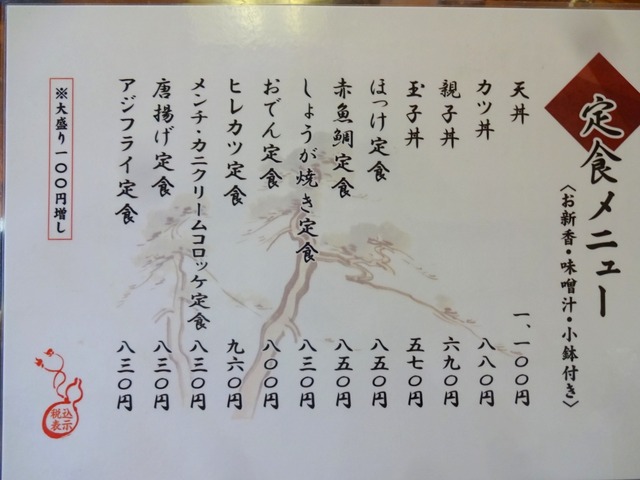 定食メニュー
〈お新香・味噌汁・小鉢付き〉
天丼 一、一〇〇円
カツ丼 八八〇円
親子丼 六九〇円
玉子丼 五七〇円
ほっけ定食 八五〇円
赤魚鯛定食 八五〇円
しょうが焼き定食 八三〇円
おでん定食 八〇〇円
ヒレカツ定食 九六〇円
メンチ・カニクリームコロッケ定食 八三〇円
唐揚げ定食 八三〇円
アジフライ定食 八三〇円
※大盛り一〇〇円増し
税込
表示